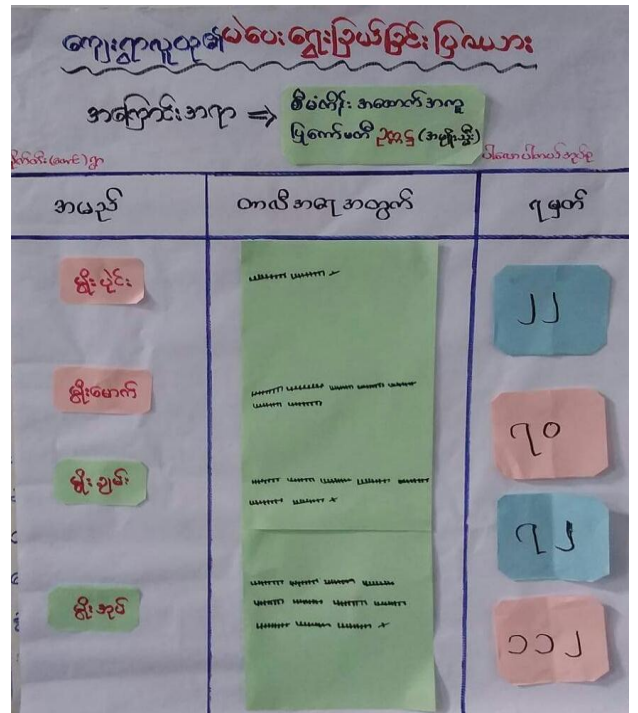 ကျေးရွာလူထု၏မဲပေးရွေးခြယ်ခြင်းပြဇယား
အကြောင်းအရာ ⇒ စီမံကိန်းအထောက်အကူ
ပြုကော်မတီ ဥက္ကဋ္ဌ (အမျိုးသ္မီး)
အမည်
တာလီအရေအတွက်
ရမှတ်
မျိုးပိုင်း
၂၂
မျိုးမောက်
၇၀
မျိုးညွမ်း
၇၂
မျိုးအုပ်
၁၁၂